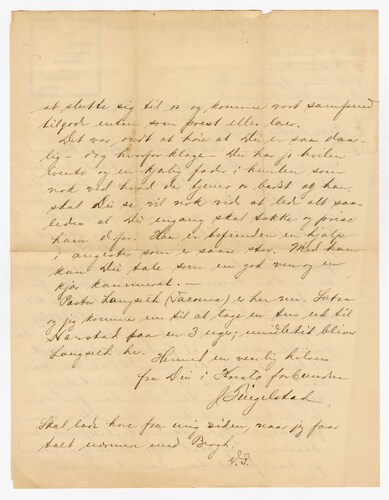 at slutte sig til os og komme vort samfund
tilgode enten som prest eller lærer.
Det var ondt at høre at Du er saa daar-
lig – dog hvorfor klage – Du har jo
og en kjærlig fader i himlen som
nok ved hvad der tjener os bedst og han
skal Du se, vil nok vide at led alt saa-
ledes at Du engang skal takke og prise
ham derfor. Han er befunden en hjælp
i angster som er saare stor. Med ham
kan Du tale som en god ven og en
kjær kammerat. —
Pastor Langseth (Tacoma) er her nu. Lutra
og jeg kommer nu til at tage en tur ud til
Harstad paa en 3 uger; imidlertid bliver
Langseth her. Hermed en venlig hilsen
fra Din i Kristo forbundne
J. Tingelstad.
Skal lade høre fra mig siden, naar jeg faar
talt nærmere med Bergh.
D.S.